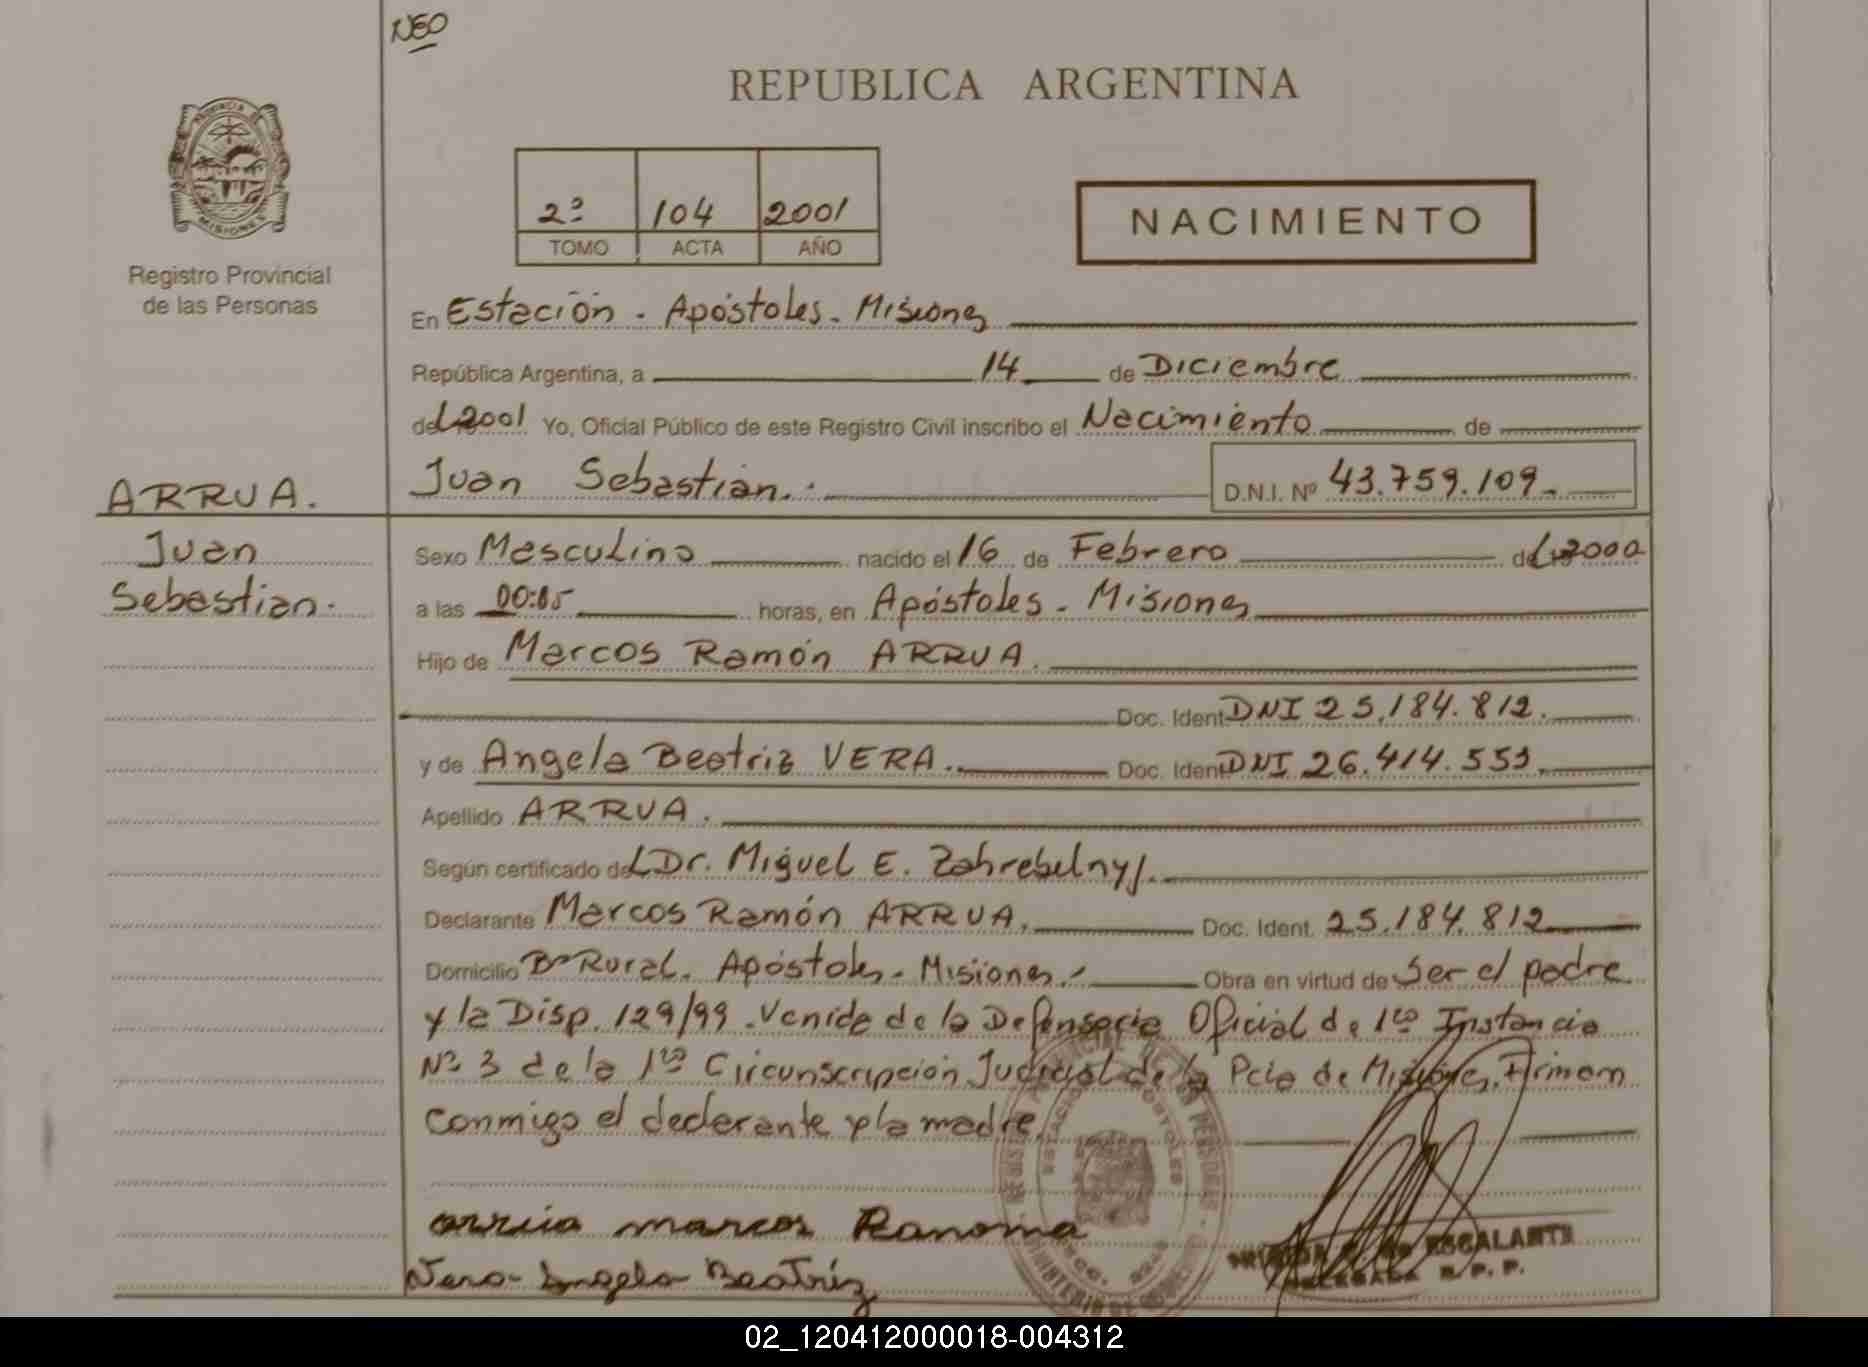 NEO
REPUBLICA ARGENTINA
2º 104 2001
TOMO ACTA AÑO
NACIMIENTO
PROVINCIA DE
MISIONES
Registro Provincial
de las Personas
En Estación - Apóstoles - Misiones
República Argentina, a 14 de Diciembre
del 2001 Yo, Oficial Público de este Registro Civil inscribo el Nacimiento de
Juan Sebastián. D.N.I. Nº 43.759.109
ARRUA.
Juan
Sebastian.
Sexo Masculino nacido el 16 de Febrero del 2000
a las horas, en Apóstoles - Misiones
Hijo de Marcos Ramón ARRUA.
Doc. Ident DNI 25.184.812.
y de Angela Beatriz VERA. Doc. Ident DNI 26.414.553.
Apellido ARRUA.
Según certificado del Dr. Miguel E. Zahrebelny.
Declarante Marcos Ramón ARRUA. Doc. Ident. 25.184.812
Domicilio Bº Rural. Apóstoles - Misiones. Obra en virtud de ser el padre
y la Disp. 129/99. Venida de la Defensoria Oficial de 1ra Instancia
Nº 3 de la 1ra Circunscripción Judicial de la Pcia de Misiones. Firman
conmigo el declarante y la madre.
arrua marcos Ranoma
Vera Angela Beatriz
ESCALANTE
DELEGADA R.P.P.
02_120412000018-004312